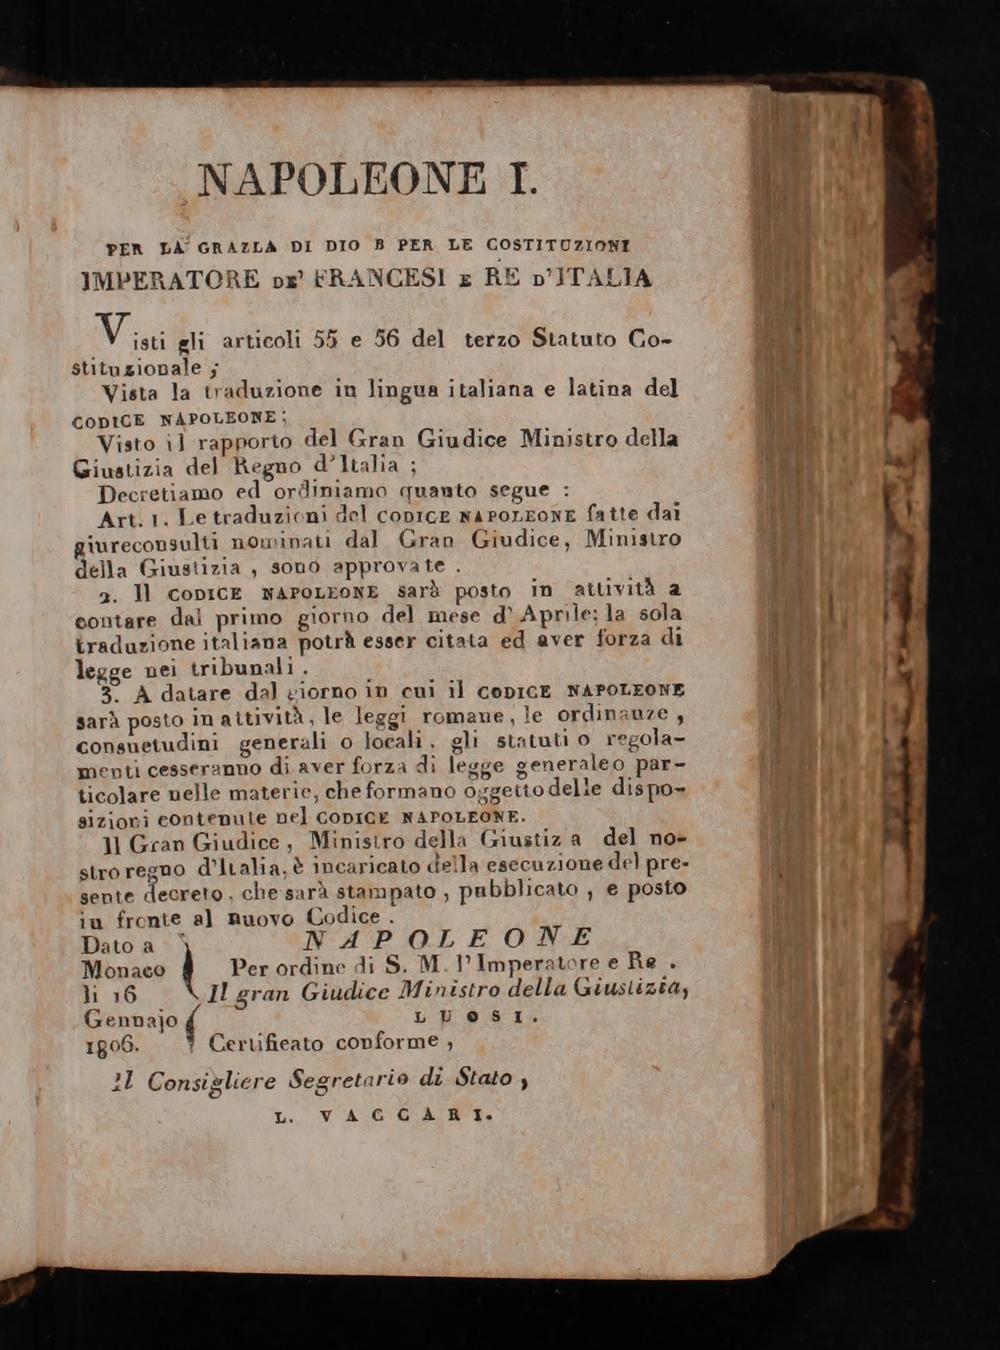 NAPOLEONE I.
PER LA GRAZLA DI DIO E PER LE COSTITUZIONI
IMPERATORE DE' FRANCESI E RE D'ITALIA
Visti gli articoli 55 e 56 del terzo Statuto Co-
stituzionale ;
Vista la traduzione in lingua italiana e latina del
CODICE NAPOLEONE ;
Visto il rapporto del Gran Giudice Ministro della
Giustizia del Regno d'Italia ;
Decretiamo ed ordiniamo quanto segue :
Art. 1. Le traduzioni del CODICE NAPOLEONE fatte dai
giureconsulti nominati dal Gran Giudice, Ministro
della Giustizia , sono approvate .
2. Il CODICE NAPOLEONE sarà posto in attività a
contare dal primo giorno del mese d' Aprile; la sola
traduzione italiana potrà esser citata ed aver forza di
legge nei tribunali .
3. A datare dal giorno in cui il CODICE NAPOLEONE
sarà posto in attività, le leggi romane, le ordinanze ,
consuetudini generali o locali, gli statuti o regola-
menti cesseranno di aver forza di legge generale o par-
ticolare nelle materie, che formano oggetto delle dispo-
sizioni contenute nel CODICE NAPOLEONE.
Il Gran Giudice , Ministro della Giustiz a del no-
stro regno d'Italia, è incaricato della esecuzione del pre-
sente decreto, che sarà stampato , pubblicato , e posto
in fronte al nuovo Codice .
Dato a NAPOLEONE
Monaco Per ordine di S. M. l'Imperatore e Re .
li 16 Il gran Giudice Ministro della Giustizia,
Gennajo LUOSI.
1806. Certificato conforme ,
Il Consigliere Segretario di Stato ,
L. VACCARI.